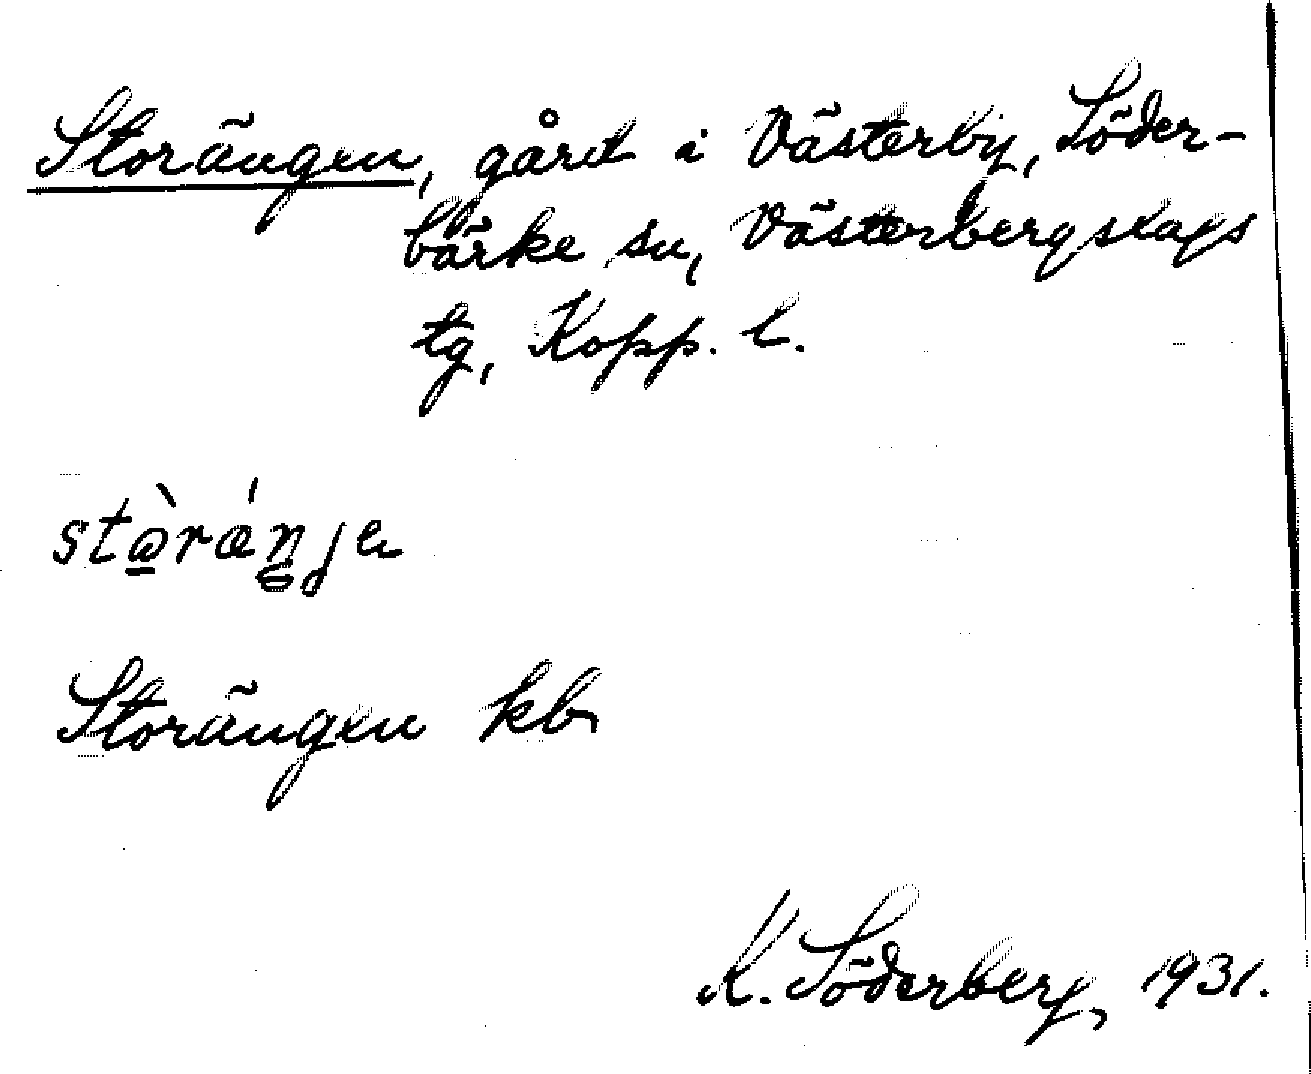 Storängen, gård i Västerby, Söder-
bärke sn, Västerbergslags
tg, Kopp. l.
Storängen kb
K. Söderberg, 1931.